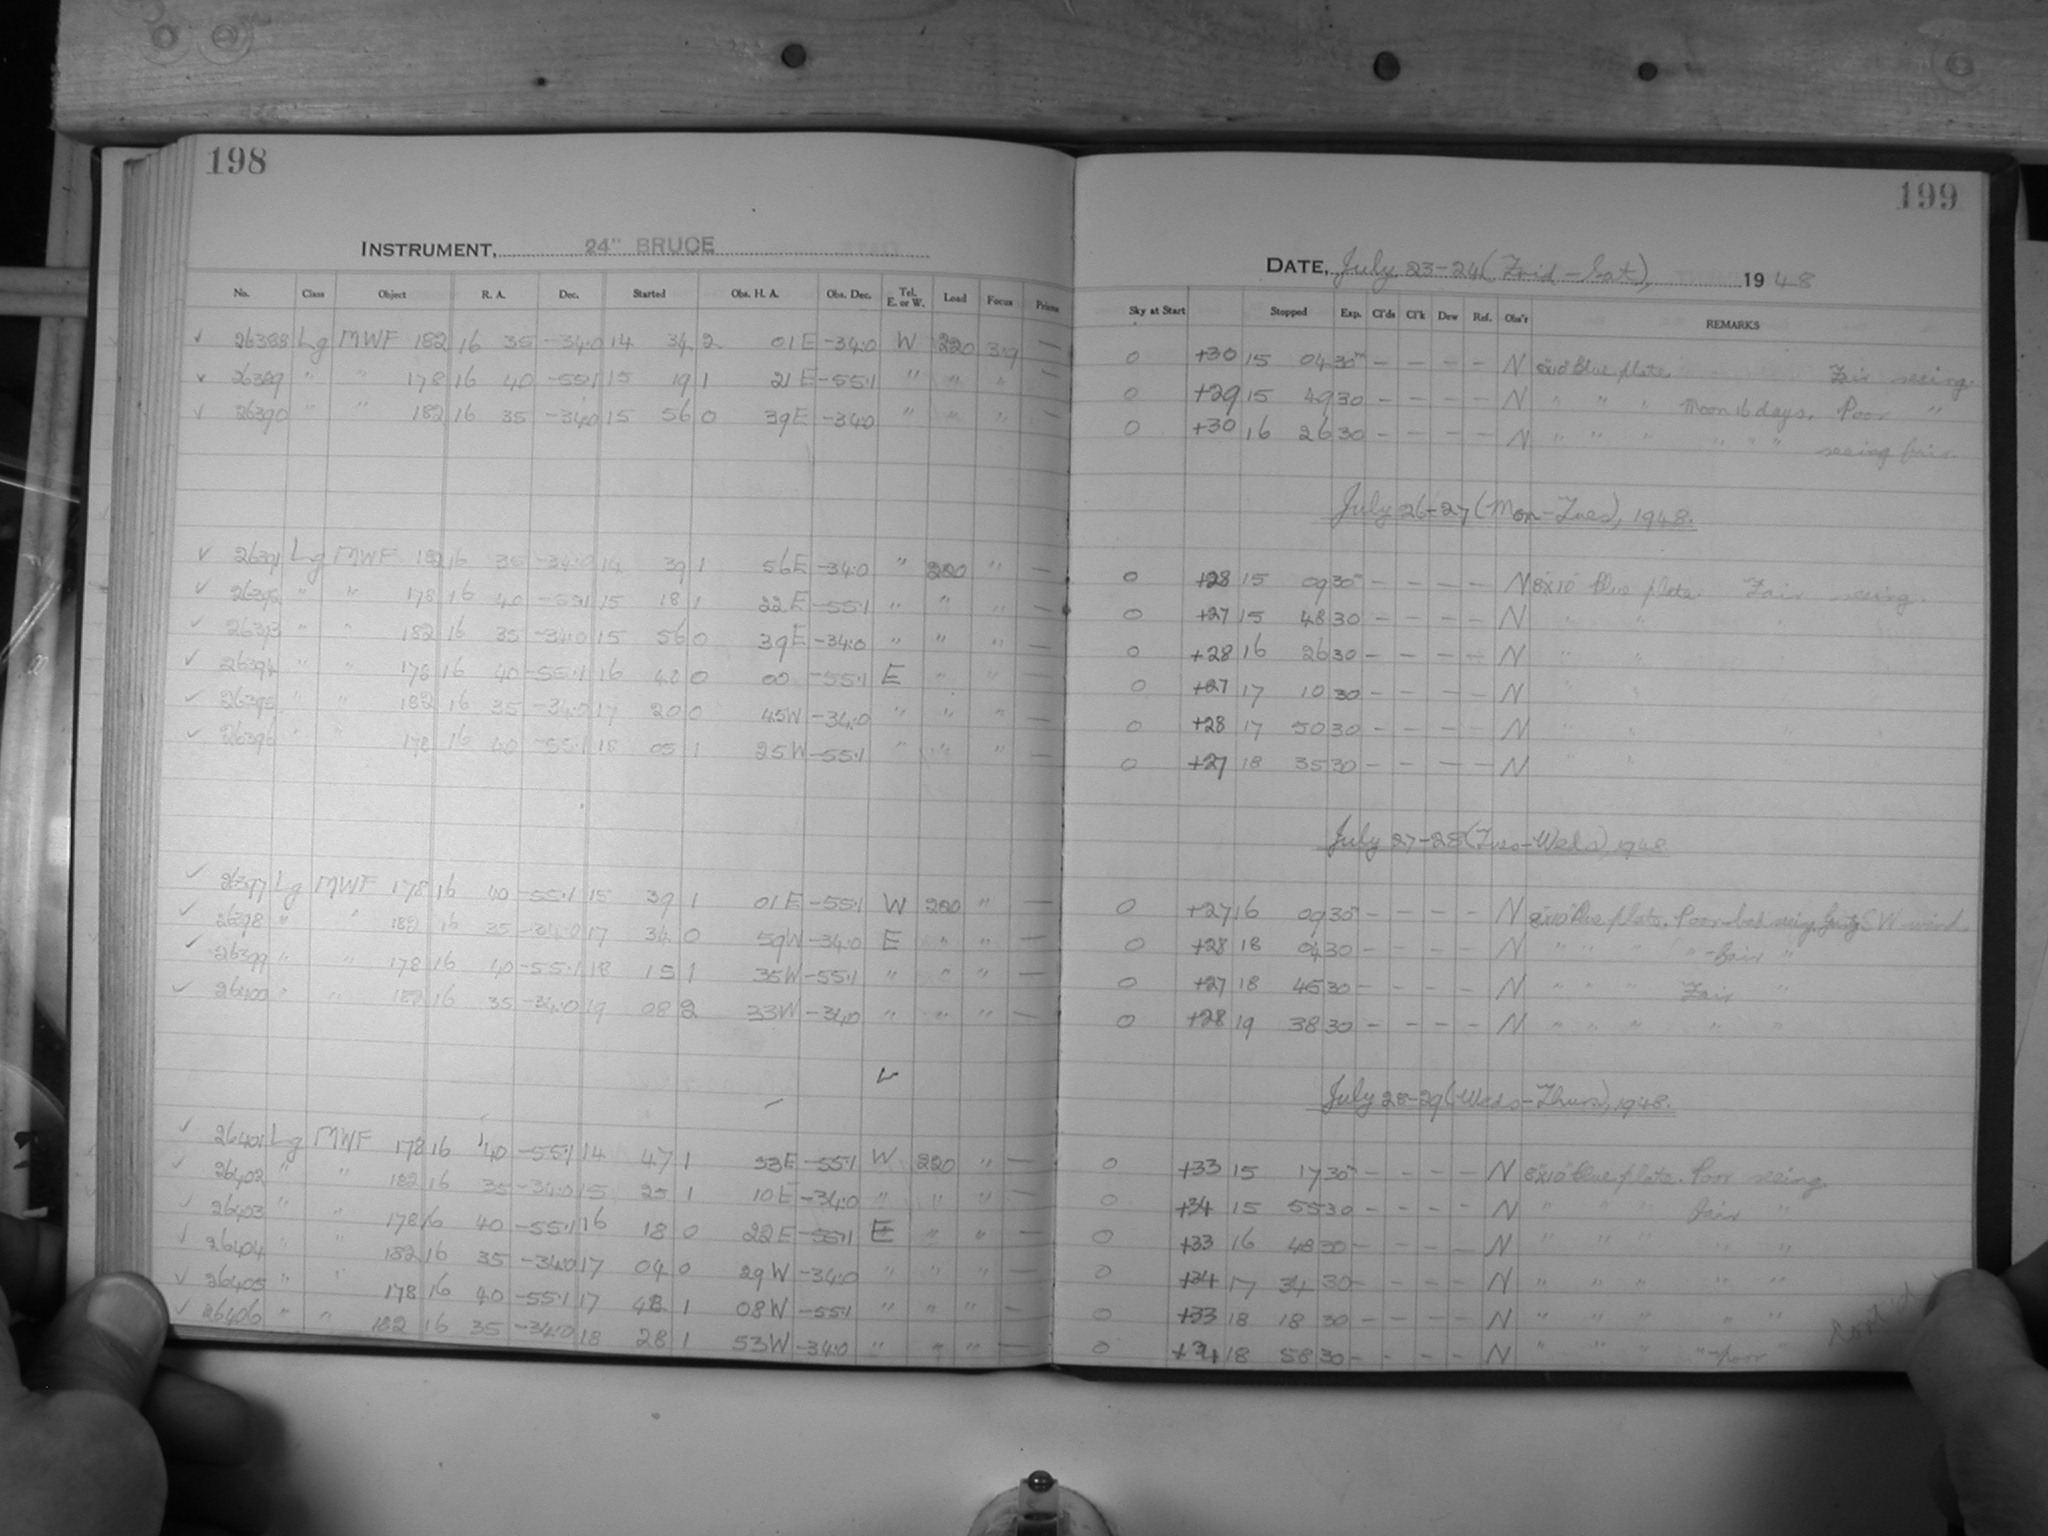 198
INSTRUMENT, 24" BRUCE
No. Class Object R. A. Dec. Started Obs. H. A. Obs. Dec. Tel. E. or W. Load Focus Prisms
✓ 26388 Lg MWF 182 16 35 -34.0 14 34 2 01 E -34.0 W 220 3.9 —
✓ 26389 " " 178 16 40 -55.1 15 19 1 21 E -55.1 " " " —
✓ 26390 " " 182 16 35 -34.0 15 56 0 39 E -34.0 " " " —
✓ 26391 Lg MWF 182 16 35 -34.0 14 39 1 56 E -34.0 " 220 " —
✓ 26392 " " 178 16 40 -55.1 15 18 1 22 E -55.1 " " " —
✓ 26393 " " 182 16 35 -34.0 15 56 0 39 E -34.0 " " " —
✓ 26394 " " 178 16 40 -55.1 16 40 0 00 -55.1 E " " —
✓ 26395 " " 182 16 35 -34.0 17 20 0 45 W -34.0 " " " —
✓ 26396 " " 178 16 40 -55.1 18 05 1 25 W -55.1 " " " —
✓ 26397 Lg MWF 178 16 40 -55.1 15 39 1 01 E -55.1 W 220 " —
✓ 26398 " " 182 16 35 -34.0 17 34 0 59 W -34.0 E " " —
✓ 26399 " " 178 16 40 -55.1 18 15 1 35 W -55.1 " " " —
✓ 26400 " " 182 16 35 -34.0 19 08 2 33 W -34.0 " " " —
✓ 26401 Lg MWF 178 16 40 -55.1 14 47 1 53 E -55.1 W 220 " —
✓ 26402 " " 182 16 35 -34.0 15 25 1 10 E -34.0 " " " —
✓ 26403 " " 178 16 40 -55.1 16 18 0 22 E -55.1 E " " —
✓ 26404 " " 182 16 35 -34.0 17 04 0 29 W -34.0 " " " —
✓ 26405 " " 178 16 40 -55.1 17 48 1 08 W -55.1 " " " —
✓ 26406 " " 182 16 35 -34.0 18 28 1 53 W -34.0 " " " —
199
DATE, July 23-24 (Frid-Sat), 1948
Sky at Start Stopped Exp. Cl'ds Cl'k Dew Ref. Obs'r REMARKS
0 +30 15 04 30m - - - - N 8x10 Blue plate. Fair seeing.
0 +29 15 49 30 - - - - N " " " Moon 16 days. Poor "
0 +30 16 26 30 - - - - N " " " " " " seeing fair.
July 26-27 (Mon-Tues), 1948.
0 +28 15 09 30m - - - - N 8x10 Blue plate. Fair seeing.
0 +27 15 48 30 - - - - N " " "
0 +28 16 26 30 - - - - N " "
0 +27 17 10 30 - - - - N " "
0 +28 17 50 30 - - - - N " " "
0 +27 18 35 30 - - - - N " " "
July 27-28 (Tues-Weds), 1948
0 +27 16 09 30m - - - - N 8x10 Blue plate. Poor-bad seeing. Gusty SW wind.
0 +28 18 04 30 - - - - N " " " " -fair "
0 +27 18 45 30 - - - - N " " " Fair "
0 +28 19 38 30 - - - - N " " " " "
July 28-29 (Weds-Thurs), 1948.
0 +33 15 17 30m - - - - N 8x10 Blue plate. Poor seeing.
0 +34 15 55 30 - - - - N " " " fair "
0 +33 16 48 30 - - - - N " " " " "
0 +34 17 34 30 - - - - N " " " " "
0 +33 18 18 30 - - - - N " " " " "
0 +34 18 58 30 - - - - N " " " "-poor "
Cont'd